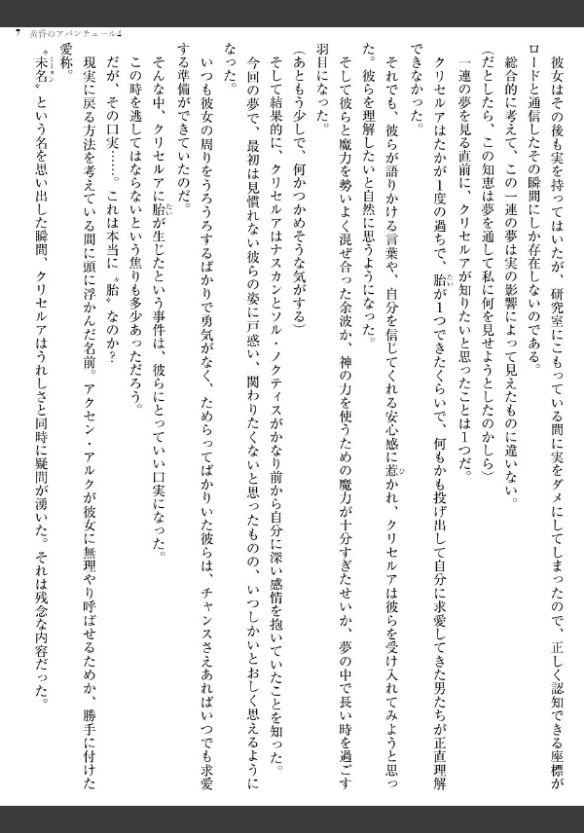 7 黄昏のアバンチュール4
彼女はその後も実を持ってはいたが、研究室にこもっている間に実をダメにしてしまったので、正しく認知できる座標が
ロードと通信したその瞬間にしか存在しないのである。
総合的に考えて、この一連の夢は実の影響によって見えたものに違いない。
(だとしたら、この知恵は夢を通して私に何を見せようとしたのかしら)
一連の夢を見る直前に、クリセルアが知りたいと思ったことは1つだ。
クリセルアはたかが1度の過ちで、胎が1つできたくらいで、何もかも投げ出して自分に求愛してきた男たちが正直理解
できなかった。
それでも、彼らが語りかける言葉や、自分を信じてくれる安心感に惹かれ、クリセルアは彼らを受け入れてみようと思っ
た。彼らを理解したいと自然に思うようになった。
そして彼らと魔力を勢いよく混ぜ合った余波か、神の力を使うための魔力が十分すぎたせいか、夢の中で長い時を過ごす
羽目になった。
(あともう少しで、何かつかめそうな気がする)
そして結果的に、クリセルアはナスカンとソル・ノクティスがかなり前から自分に深い感情を抱いていたことを知った。
今回の夢で、最初は見慣れない彼らの姿に戸惑い、関わりたくないと思ったものの、いつしかいとおしく思えるように
なった。
いつも彼女の周りをうろうろするばかりで勇気がなく、ためらってばかりいた彼らは、チャンスさえあればいつでも求愛
する準備ができていたのだ。
そんな中、クリセルアに胎が生じたという事件は、彼らにとっていい口実になった。
この時を逃してはならないという焦りも多少あっただろう。
だが、その口実……。これは本当に〝胎〟なのか?
現実に戻る方法を考えている間に頭に浮かんだ名前。アクセン・アルクが彼女に無理やり呼ばせるためか、勝手に付けた
愛称。
〝未名〟という名を思い出した瞬間、クリセルアはうれしさと同時に疑問が湧いた。それは残念な内容だった。